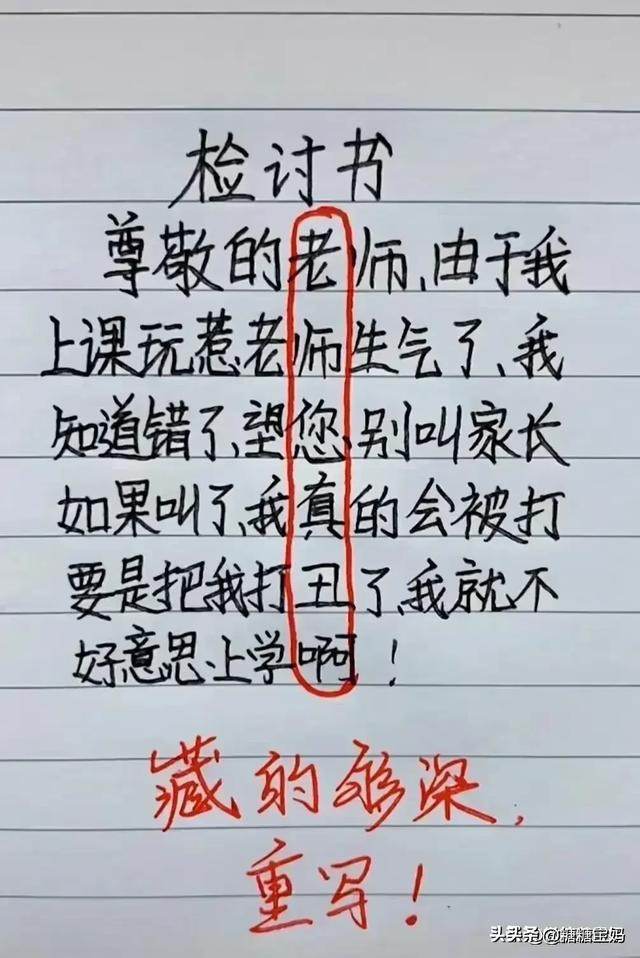 检讨书
尊敬的老师,由于我
上课玩惹老师生气了、我
知道错了,望您别叫家长
如果叫了,我真的会被打
要是把我打丑了,我就不
好意思上学啊!
藏的够深,
重写!
头条@糖糖宝妈